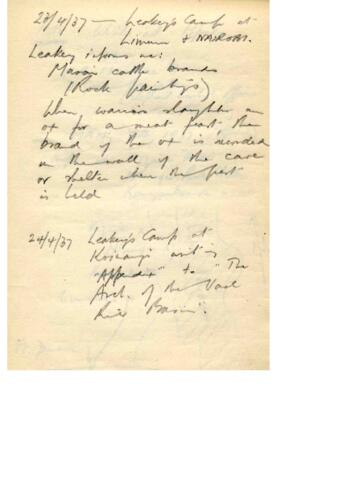 23/4/37 — Leakey's Camp at
Limuru & NAIROBI.
Leakey informs me:
Masai cattle brands
(Rock paintings)
When warriors slaughter an
ox for a meat feast, the
brand of the ox is recorded
on the wall of the cave
or shelter where the feast
is held
24/4/37 Leakey's Camp at
writing
"Appendix" to "The
Arch. of the Vaal
River Basin".